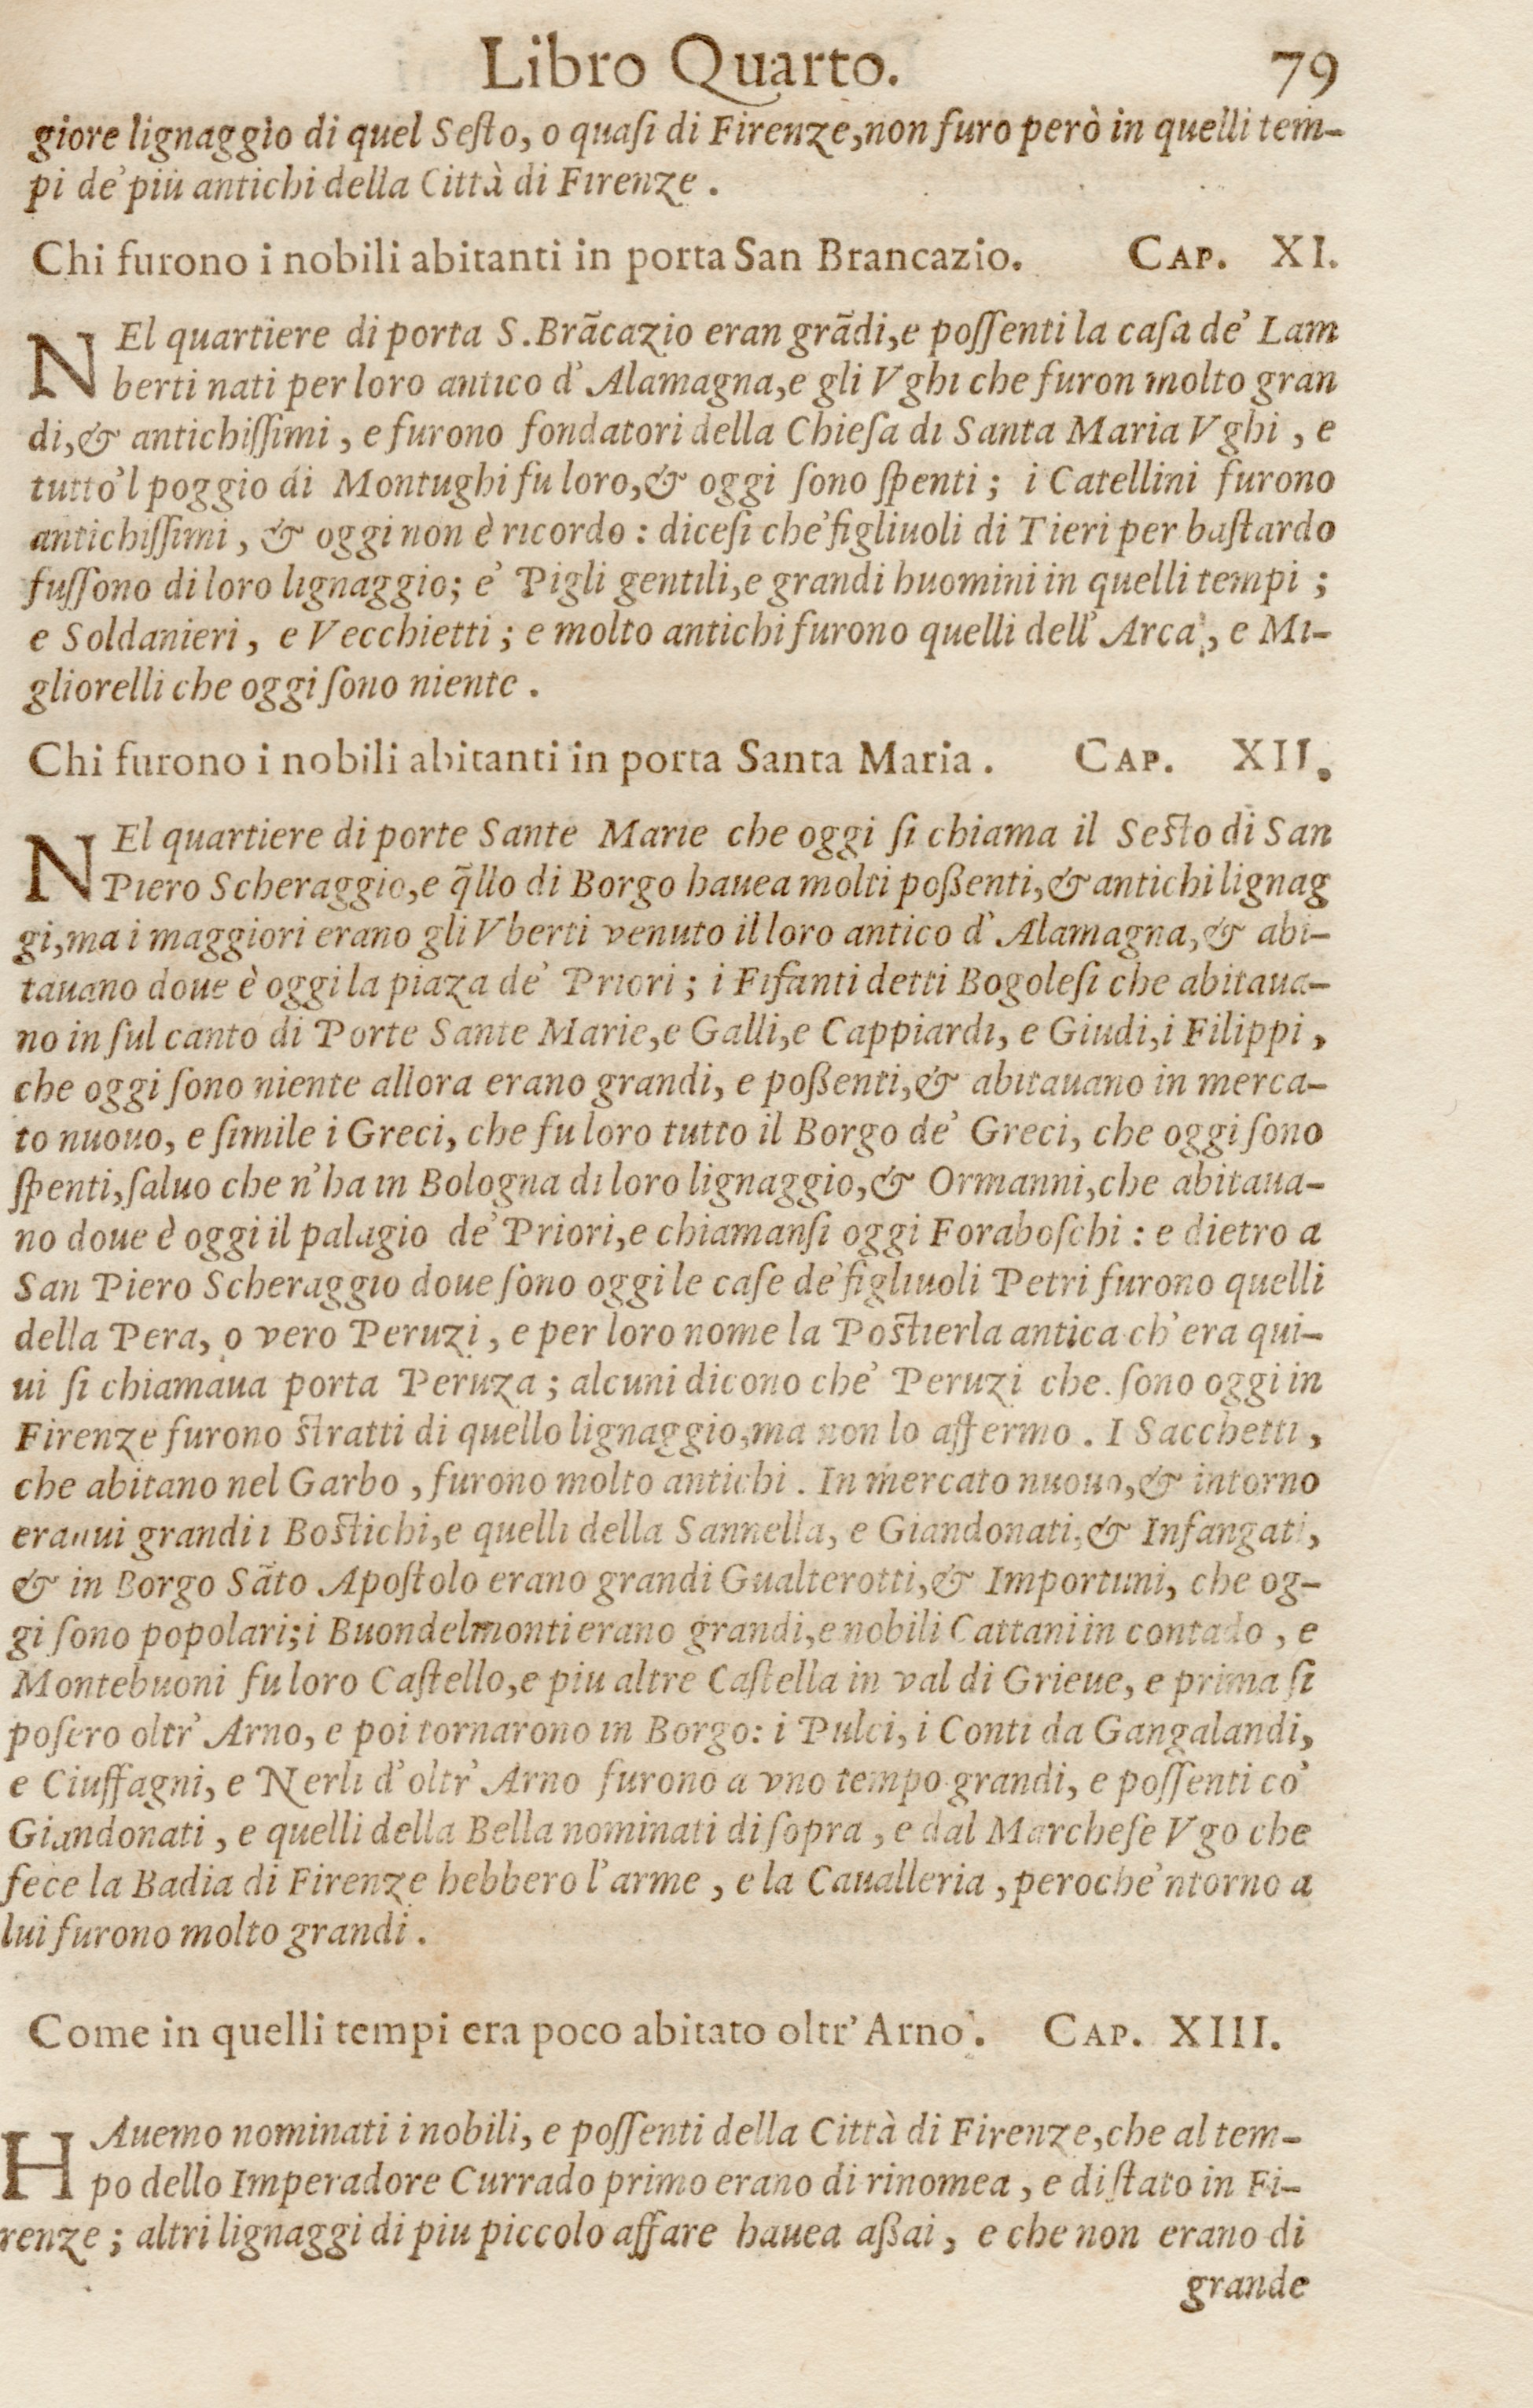 Libro Quarto. 79
giore lignaggio di quel Seſto, o quaſi di Firenze, non furo però in quelli tem-
pi de' più antichi della Città di Firenze.
Chi furono i nobili abitanti in porta San Brancazio. CAP. XI.
NEl quartiere di porta S. Brãcazio eran grãdi, e poſſenti la caſa de' Lam
berti nati per loro antico d' Alamagna, e gli Vghi che furon molto gran
di, & antichiſſimi, e furono fondatori della Chieſa di Santa Maria Vghi, e
tutto'l poggio di Montughi fu loro, & oggi ſono ſpenti; i Catellini furono
antichiſſimi, & oggi non è ricordo: diceſi che' figliuoli di Tieri per baſtardo
fuſſono di loro lignaggio; e' Pigli gentili, e grandi huomini in quelli tempi;
e Soldanieri, e Vecchietti; e molto antichi furono quelli dell' Arca, e Mi-
gliorelli che oggi ſono niente.
Chi furono i nobili abitanti in porta Santa Maria. CAP. XII.
NEl quartiere di porte Sante Marie che oggi ſi chiama il Seſto di San
Piero Scheraggio, e q̃llo di Borgo hauea molti poßenti, & antichi lignag
gi, ma i maggiori erano gli Vberti venuto il loro antico d' Alamagna, & abi-
tauano doue è oggi la piaza de' Priori; i Fifanti detti Bogoleſi che abitaua-
no in ſul canto di Porte Sante Marie, e Galli, e Cappiardi, e Giudi, i Filippi,
che oggi ſono niente allora erano grandi, e poßenti, & abitauano in merca-
to nuouo, e ſimile i Greci, che fu loro tutto il Borgo de' Greci, che oggi ſono
ſpenti, ſaluo che n' ha in Bologna di loro lignaggio, & Ormanni, che abitaua-
no doue è oggi il palagio de' Priori, e chiamanſi oggi Foraboſchi: e dietro a
San Piero Scheraggio doue ſono oggi le caſe de' figliuoli Petri furono quelli
della Pera, o vero Peruzi, e per loro nome la Poſtierla antica ch' era qui-
ui ſi chiamaua porta Peruza; alcuni dicono che' Peruzi che. ſono oggi in
Firenze furono ſtratti di quello lignaggio, ma non lo affermo. I Sacchetti,
che abitano nel Garbo, furono molto antichi. In mercato nuouo, & intorno
eranui grandi i Boſtichi, e quelli della Sannella, e Giandonati, & Infangati,
& in Borgo Sãto Apoſtolo erano grandi Gualterotti, & Importuni, che og-
gi ſono popolari; i Buondelmonti erano grandi, e nobili Cattani in contado, e
Montebuoni fu loro Caſtello, e piu altre Caſtella in val di Grieue, e prima ſi
poſero oltr' Arno, e poi tornarono in Borgo: i Pulci, i Conti da Gangalandi,
e Ciuffagni, e Nerli d' oltr' Arno furono a vno tempo grandi, e poſſenti co'
Giandonati, e quelli della Bella nominati di ſopra, e dal Marcheſe Vgo che
fece la Badia di Firenze hebbero l' arme, e la Caualleria, peroche' ntorno a
lui furono molto grandi.
Come in quelli tempi era poco abitato oltr' Arno. CAP. XIII.
HAuemo nominati i nobili, e poſſenti della Città di Firenze, che al tem-
po dello Imperadore Currado primo erano di rinomea, e di ſtato in Fi-
renze; altri lignaggi di piu piccolo affare hauea aßai, e che non erano di
grande